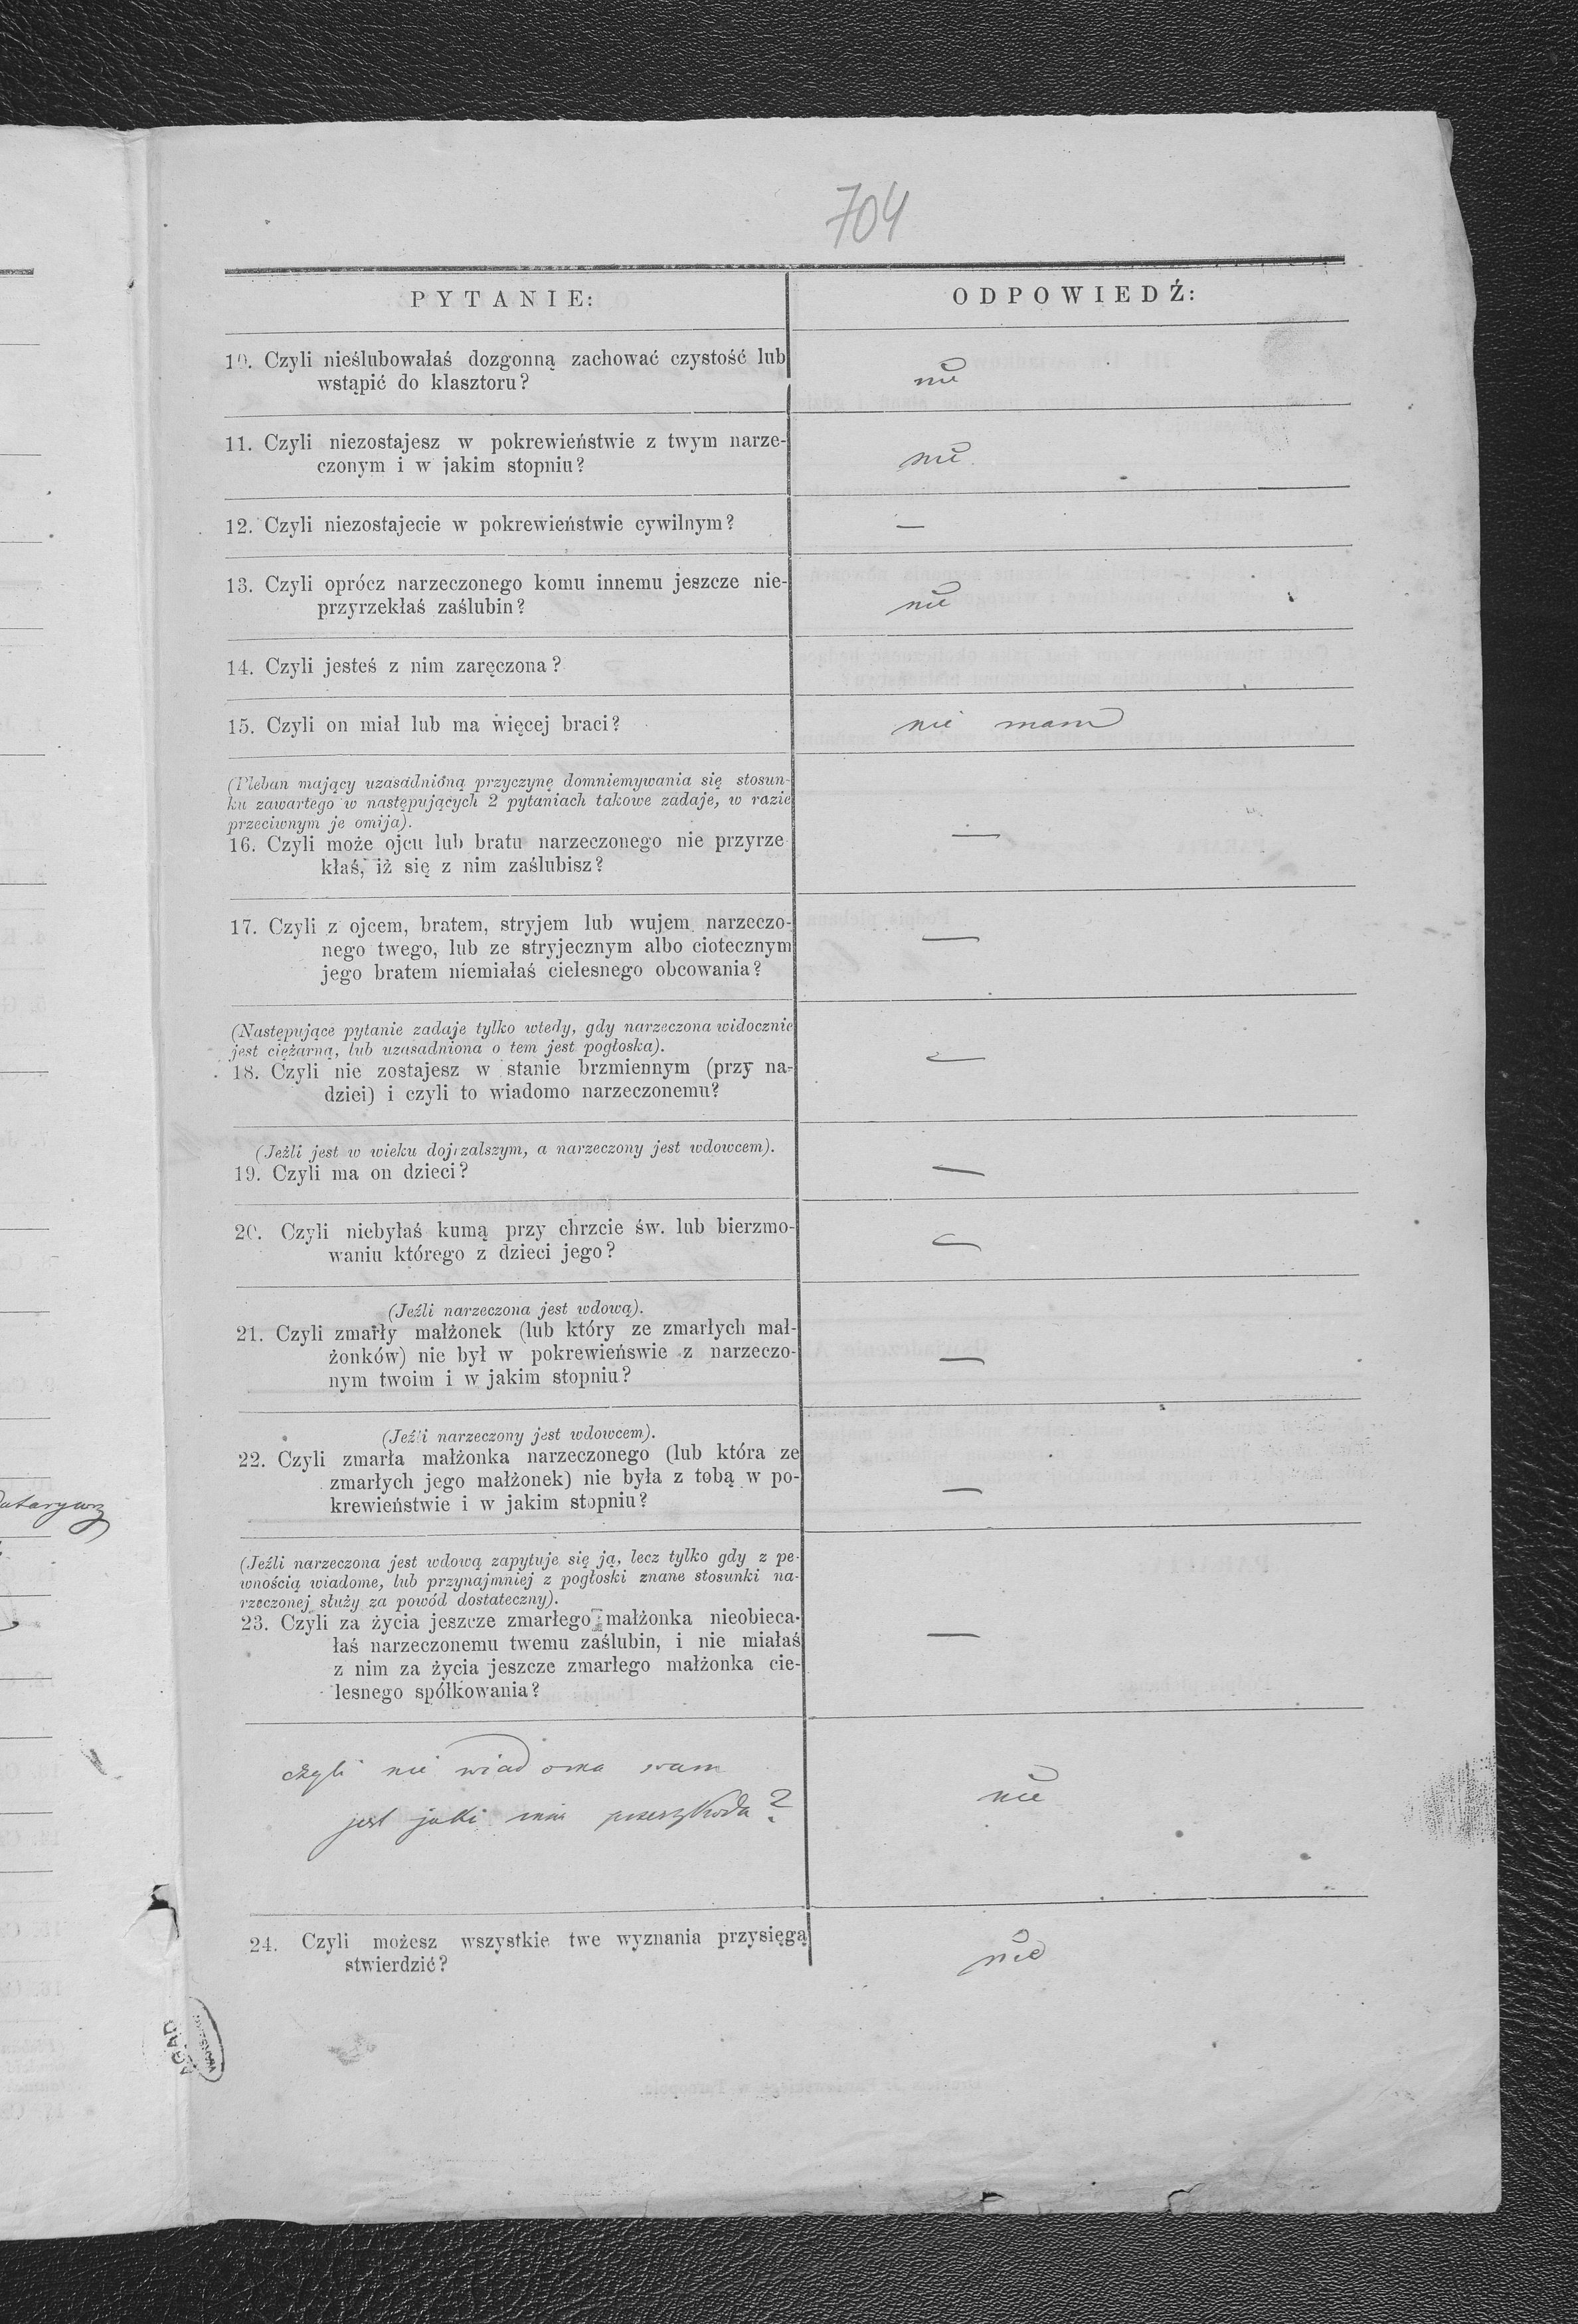 704
PYTANIE:
ODPOWIEDŹ:
10. Czyli nieślubowałaś dozgonną zachować czystość lub
wstąpić do klasztoru?
nie
11. Czyli niezostajesz w pokrewieństwie z twym narze-
czonym i w jakim stopniu?
nie
12. Czyli niezostajecie w pokrewieństwie cywilnym?
—
13. Czyli oprócz narzeczonego komu innemu jeszcze nie-
przyrzekłaś zaślubin?
nie
14. Czyli jesteś z nim zaręczona?
15. Czyli on miał lub ma więcej braci?
nie mam
(Pleban mający uzasadnióną przyczynę domniemywania się stosun-
ku zawartego w następujących 2 pytaniach takowe zadaje, w razie
przeciwnym je omija).
16. Czyli może ojcu lub bratu narzeczonego nie przyrze
kłaś, iż się z nim zaślubisz?
—
17. Czyli z ojcem, bratem, stryjem lub wujem narzeczo-
nego twego, lub ze stryjecznym albo ciotecznym
jego bratem niemiałaś cielesnego obcowania?
—
(Następujące pytanie zadaje tylko wtedy, gdy narzeczona widocznie
jest ciężarną, lub uzasadniona o tem jest pogłoska).
18. Czyli nie zostajesz w stanie brzmiennym (przy na-
dziei) i czyli to wiadomo narzeczonemu?
—
(Jeżli jest w wieku dojrzalszym, a narzeczony jest wdowcem).
19. Czyli ma on dzieci?
—
20. Czyli niebyłaś kumą przy chrzcie św. lub bierzmo-
waniu którego z dzieci jego?
—
(Jeźli narzeczona jest wdową).
21. Czyli zmarły małżonek (lub który ze zmarłych mał-
żonków) nie był w pokrewieńswie z narzeczo-
nym twoim i w jakim stopniu?
—
(Jeźli narzeczony jest wdowcem).
22. Czyli zmarła małżonka narzeczonego (lub która ze
zmarłych jego małżonek) nie była z tobą w po-
krewieństwie i w jakim stopniu?
—
(Jeźli narzeczona jest wdową zapytuje się ją, lecz tylko gdy z pe-
wnością wiadome, lub przynajmniej z pogłoski znane stosunki na-
rzeczonej służy za powód dostateczny).
23. Czyli za życia jeszcze zmarłego małżonka nieobieca-
łaś narzeczonemu twemu zaślubin, i nie miałaś
z nim za życia jeszcze zmarłego małżonka cie-
lesnego spółkowania?
—
czyli nie wiadoma wam
jest jaki inna przeszkoda?
nie
24. Czyli możesz wszystkie twe wyznania przysięgą
stwierdzić?
nie
AGAD